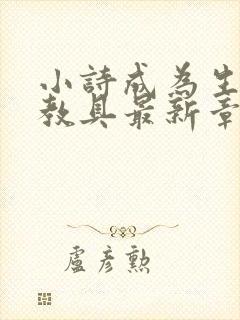 小詩成為生
教具最新章
盧彥勲